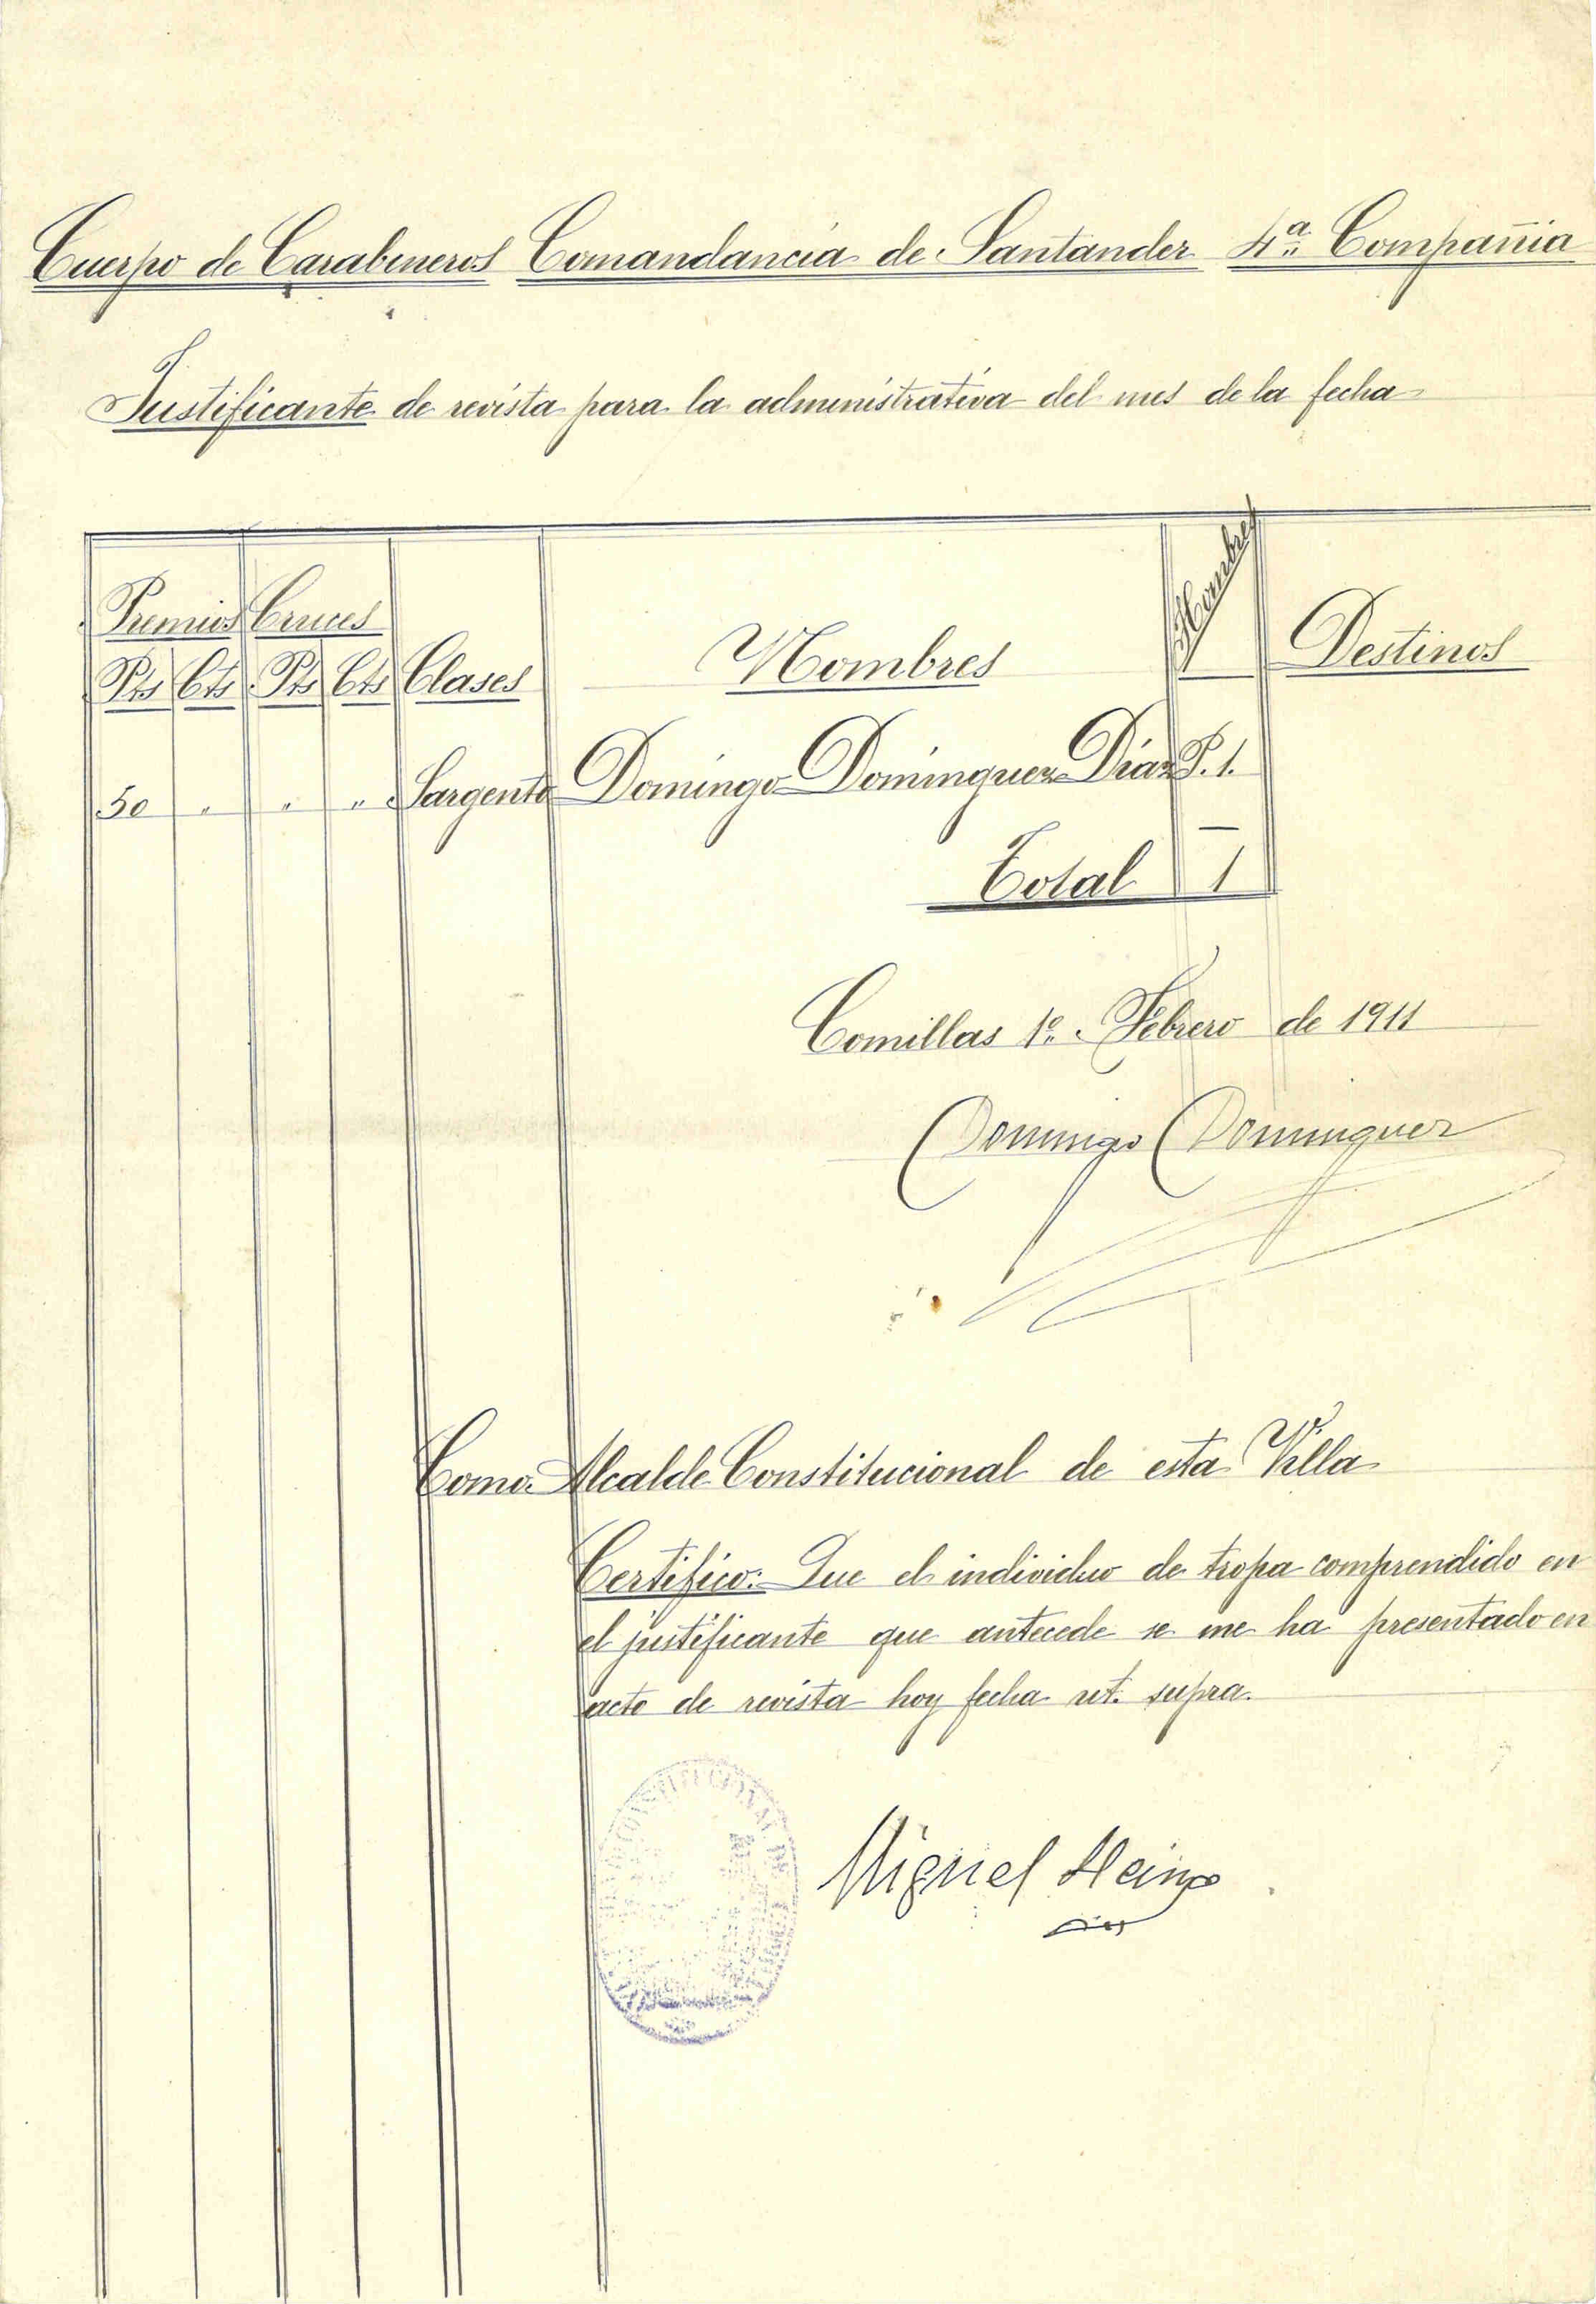 Cuerpo de Carabineros Comandancia de Santander 4ª Compañia
Justificante de revista para la administrativa del mes de la fecha
Premios Cruces
Hombres
Pts Cts Pts Cts Clases Nombres Destinos
50 " " " Sargento Domingo Dominguez Diaz P. 1.
Total 1
Comillas 1º Febrero de 1911
Domingo Dominguez
Como Alcalde Constitucional de esta Villa
Certifico: Que el individuo de tropa comprendido en
el justificante que antecede se me ha presentado en
acto de revista hoy fecha ut. supra.
CONSTITUCIONAL DE
Miguel